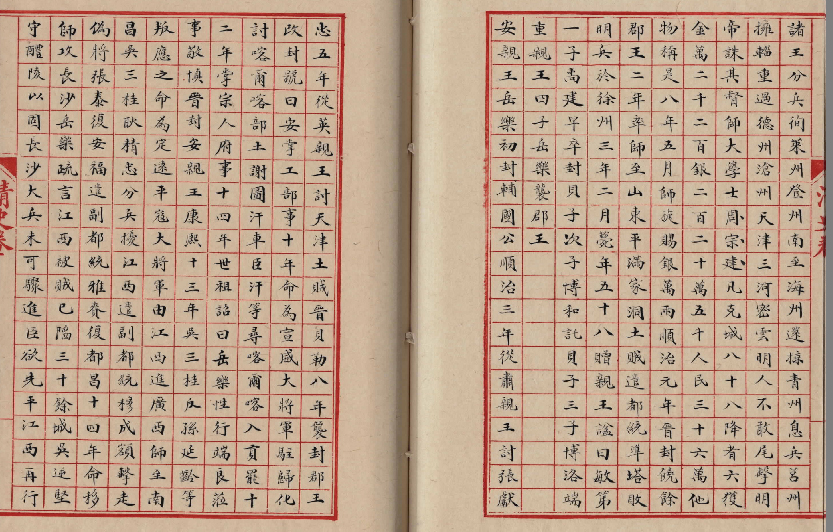 諸王分兵徇萊州登州南至海州還掠青州息兵莒州
擁輜重過德州滄州天津三河密雲明人不敢尾擊明
帝誅其督師大學士周宗建凡克城八十八降者六獲
金萬二千二百銀二百二十萬五千人民三十六萬他
物稱是八年五月師旋賜銀萬兩順治元年晉封饒餘
郡王二年率師至山東平滿家洞土賊遣都統準塔敗
明兵於徐州三年二月薨年五十八贈親王諡曰敏第
一子尚建早卒封貝子次子博和託貝子三子博洛端
重親王四子岳樂襲郡王
安親王岳樂初封輔國公順治三年從肅親王討張獻
忠五年從英親王討天津土賊晉貝勒八年襲封郡王
改封號曰安掌工部事十年命為宣威大將軍駐歸化
討喀爾喀部土謝圖汗車臣汗等尋喀爾喀入貢罷十
二年掌宗人府事十四年世祖詔曰岳樂性行端良蒞
事敬慎晉封安親王康熙十三年吳三桂反孫延齡等
叛應之命為定遠平寇大將軍由江西進廣西師至南
昌吳三桂耿精忠分兵擾江西遣副都統穆成額擊走
偽將張泰復安福遣副都統雅賚復都昌十四年命移
師攻長沙岳樂疏言江西被賊已陷三十餘城吳逆堅
守醴陵以固長沙大兵未可驟進臣欲先平江西再行
清史卷